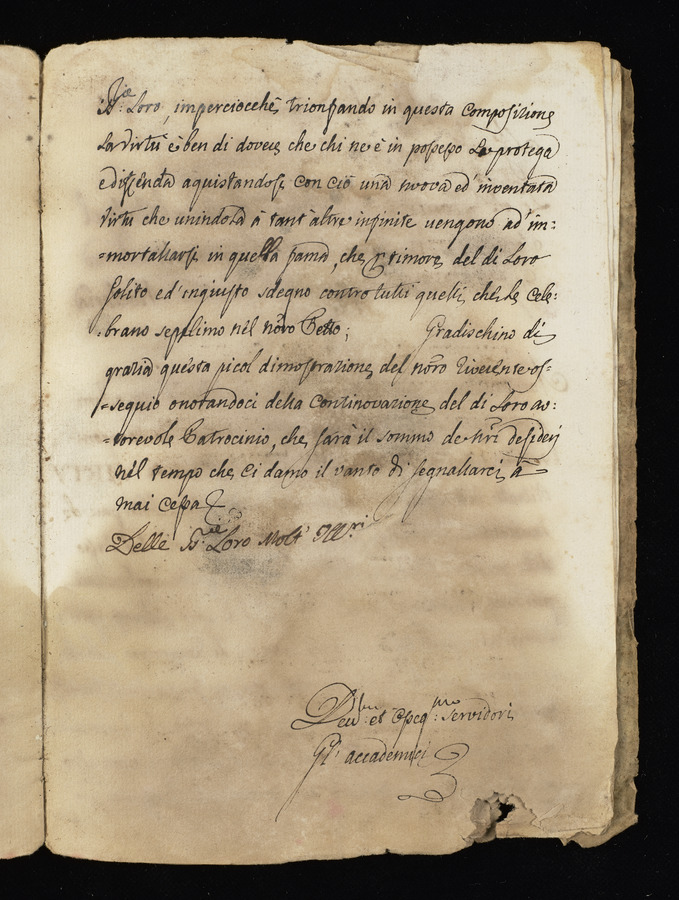 SS:rie Loro, imperciocchè trionfando in questa Composizione
la Virtù è ben di dovere che chi ne è in possesso la protega
e diffenda aquistandosi con ciò una nuova ed' inventata
virtù che unindola à tant'altre infinite uengono ad' im:
=mortallarsi in quella fama, che timore del di Loro
solito ed' ingiusto sdegno contro tutti quelli, che le Cele:
:brano nel nro Petto; Gradischino di
grazia questa picol dimostrazione del nro riverente os=
=sequio onorandoci della Continovazione del di Loro au:
=torevole Patrocinio, che sarà il sommo de nri desiderj
nel tempo che ci diamo il vanto di segnallarci à
mai cessa
Delle SS:rie Loro Molt' Ill:ri
Deu:mi et Osseq:mi Servidori
Gl' accademici